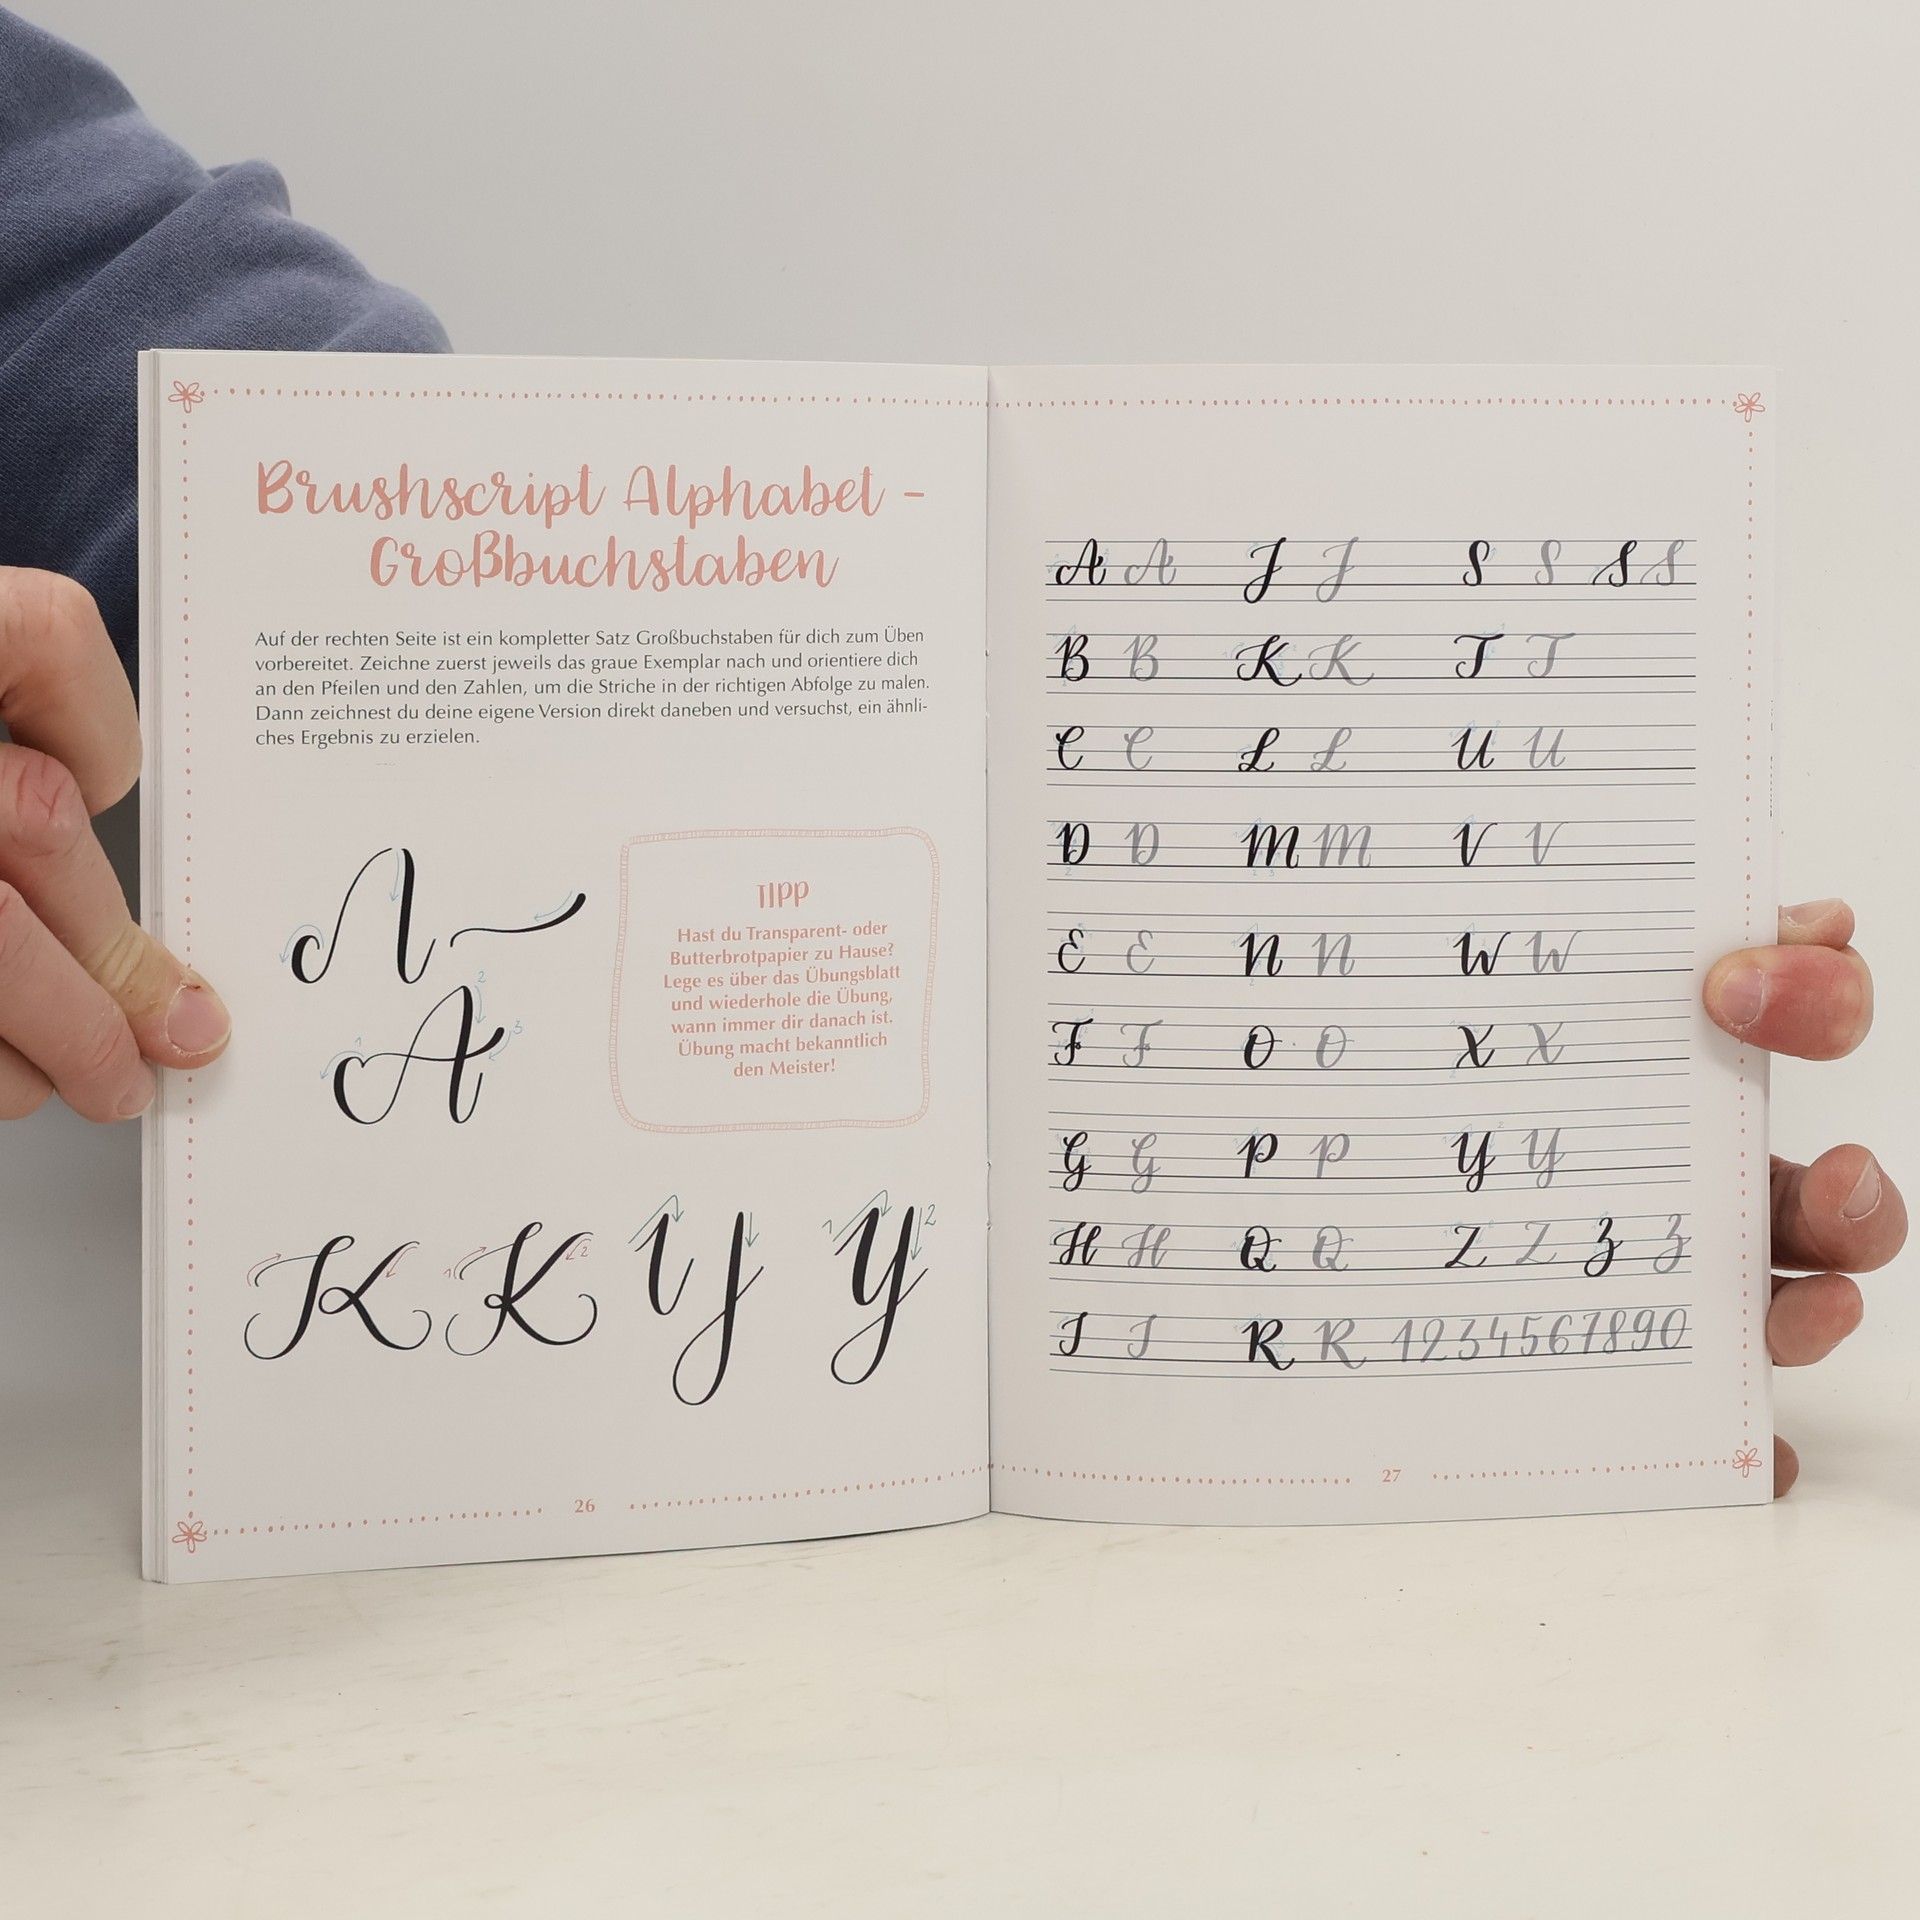 Brushscript Alphabet -
Großbuchstaben
Auf der rechten Seite ist ein kompletter Satz Großbuchstaben für dich zum Üben
vorbereitet. Zeichne zuerst jeweils das graue Exemplar nach und orientiere dich
an den Pfeilen und den Zahlen, um die Striche in der richtigen Abfolge zu malen.
Dann zeichnest du deine eigene Version direkt daneben und versuchst, ein ähnli-
ches Ergebnis zu erzielen.
1 2 3
A
TIPP
Hast du Transparent- oder
Butterbrotpapier zu Hause?
Lege es über das Übungsblatt
und wiederhole die Übung,
wann immer dir danach ist.
Übung macht bekanntlich
den Meister!
K 1 K 2 1 Y 2
26
A A J J S S S S
B B K K T T
C C L L U U
D D M M V V
E E N N W W
F F O O X X
G G P P Y Y
H H Q Q Z Z Z Z
I I R R 1234567890
27